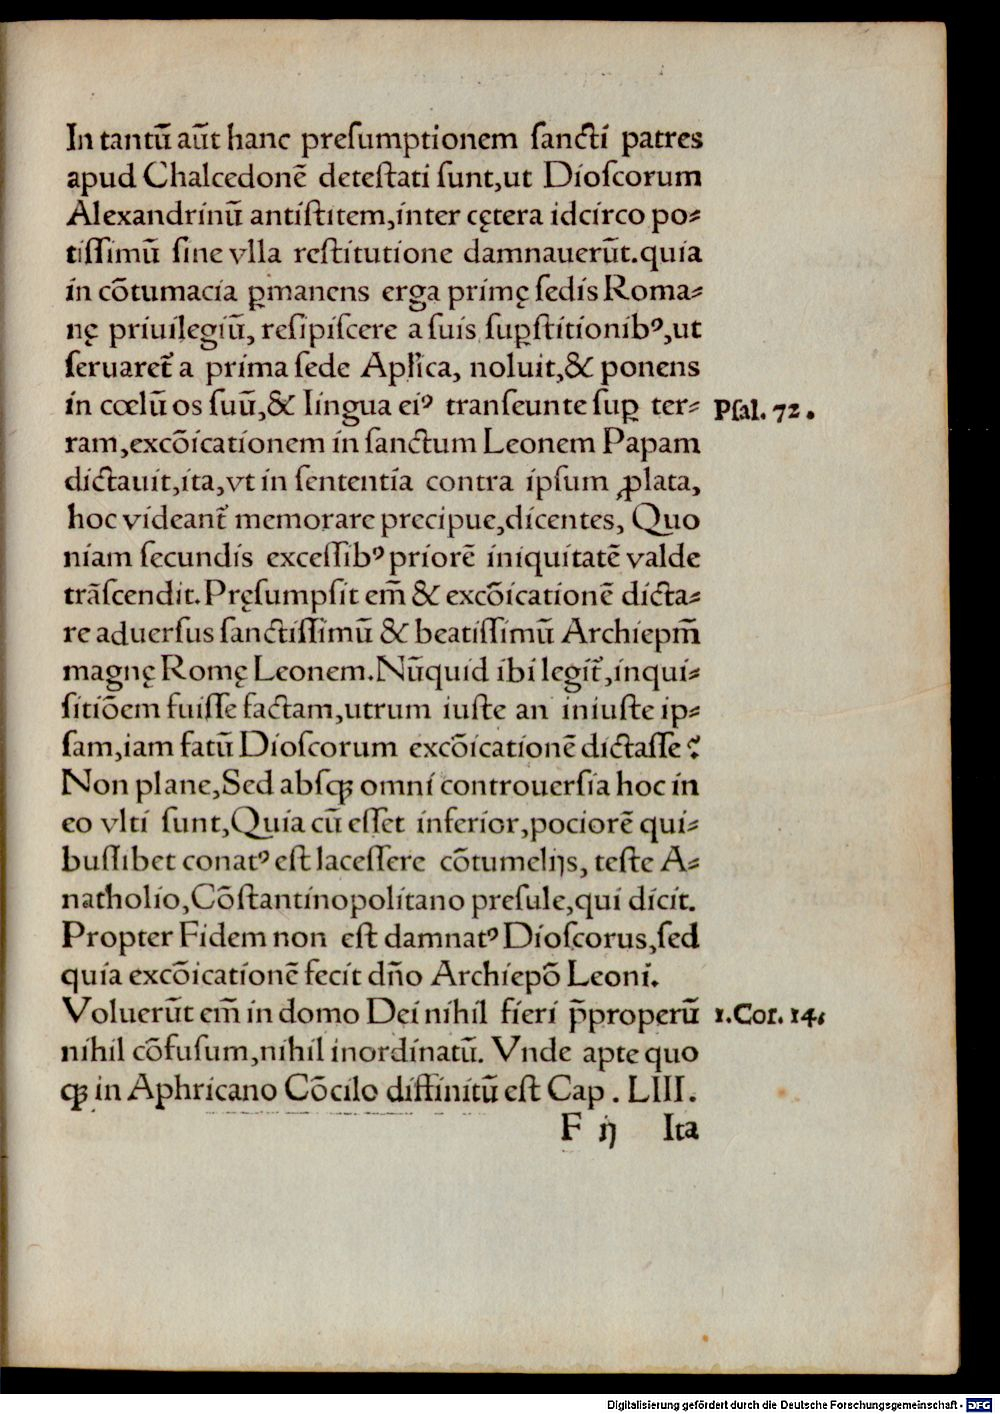 In tantū aūt hanc presumptionem sancti patres
apud Chalcedonē detestati sunt,ut Dioscorum
Alexandrinū antistitem,inter cętera idcirco po⸗
tissimū sine vlla restitutione damnauerūt.quia
in cōtumacia ꝑmanens erga primę sedis Roma⸗
nę priuilegiū, resipiscere a suis suꝑstitionibꝰ,ut
seruaret᷑ a prima sede Apl̄ica, noluit,& ponens
in cœlū os suū,& lingua eiꝰ transeunte suꝑ ter⸗
Psal. 72.
ram,excōicationem in sanctum Leonem Papam
dictauit,ita,vt in sententia contra ipsum ꝓlata,
hoc videant᷑ memorare precipue,dicentes, Quo
niam secundis excessibꝰ priorē iniquitatē valde
trāscendit.Pręsumpsit em̄ & excōicationē dicta⸗
re aduersus sanctissimū & beatissimū Archiepm̄
magnę Romę Leonem.Nūquid ibi legit᷑,inqui⸗
sitiōem fuisse factam,utrum iuste an iniuste ip⸗
sam,iam fatū Dioscorum excōicationē dictasse?
Non plane,Sed absqꝫ omni controuersia hoc in
eo vlti sunt,Quia cū esset inferior,pociorē qui⸗
buslibet conatꝰ est lacessere cōtumelijs, teste A⸗
natholio,Cōstantinopolitano presule,qui dicit.
Propter Fidem non est damnatꝰ Dioscorus,sed
quia excōicationē fecit dn̄o Archiepō Leoni.
Voluerūt em̄ in domo Dei nihil fieri p̄properū
1.Cor. 14.
nihil cōfusum,nihil inordinatū. Vnde apte quo
qꝫ in Aphricano Cōcilo diffinitū est Cap . LIII.
F ij Ita
Digitalisierung gefördert durch die Deutsche Forschungsgemeinschaft - DFG